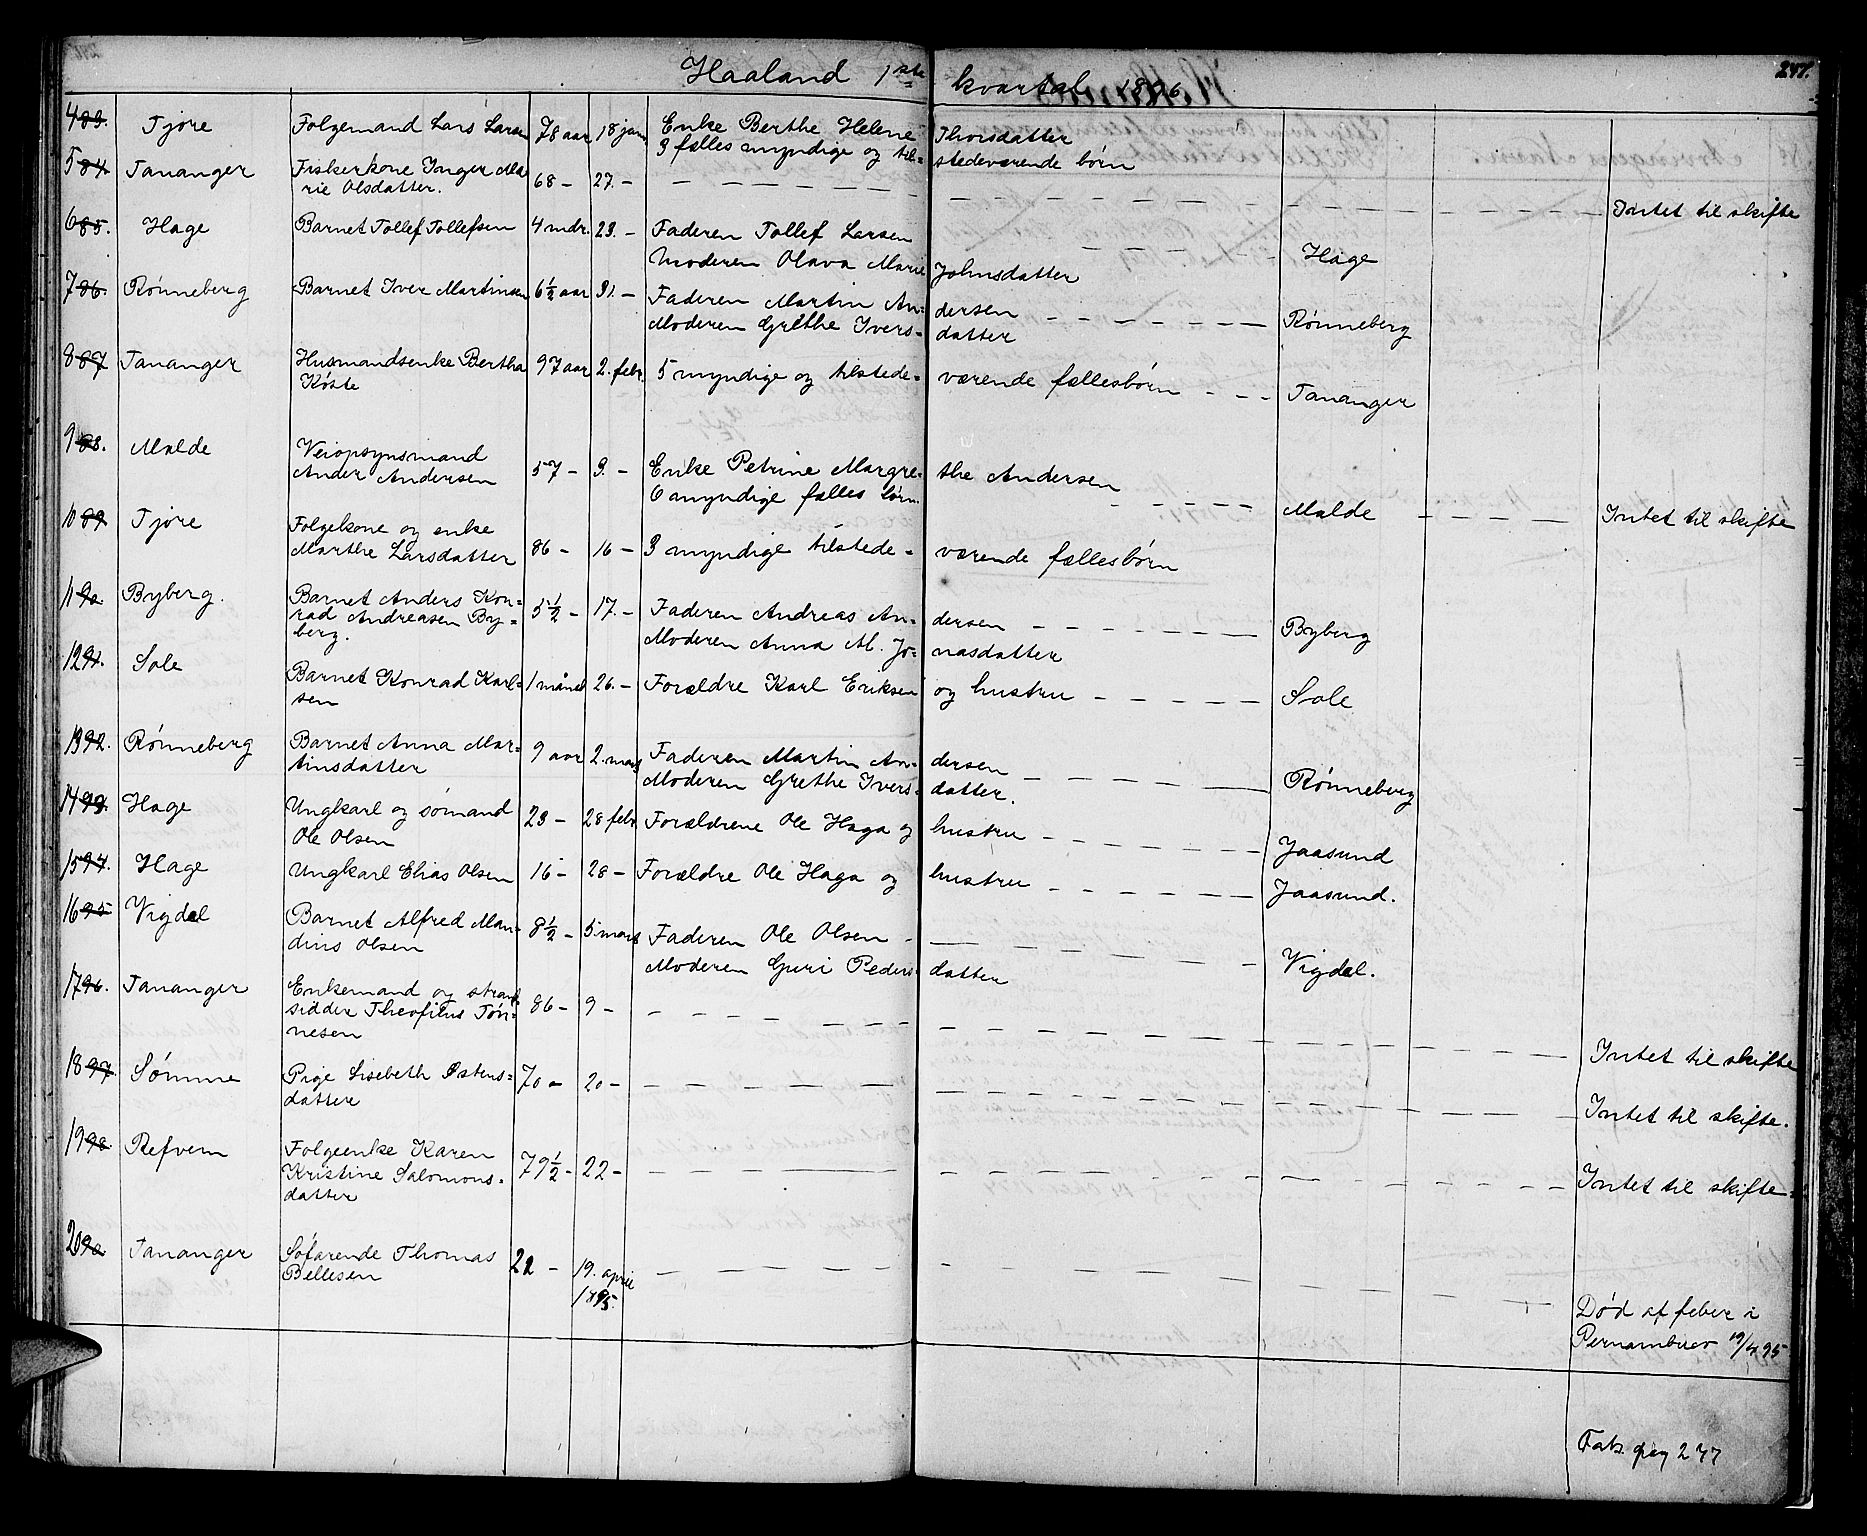 Haaland 1ste kvartal 1896. 247.
483. Tjøre Folgemand Lars Larsen 78 aar 18 jan Enke Berthe Helene Thorsdatter
3 fælles myndige og til= stedeværende børn
584. Tananger Fiskerkone Inger Ma
rie Olsdatter. 68 - 27. - Intet til skifte
685. Hage Barnet Tollef Tollefsen 4 mdr. 23. - Faderen Tollef Larsen Hage
Moderen Olava Marie Johnsdatter
786. Rønneberg Barnet Iver Martinsen 6½ aar 31. - Faderen Martin An= dersen Rønneberg
Moderen Grethe Ivers= datter
887 Tananger Husmandsenke Bertha
Køste 97 aar 2. febr. 5 myndige og tilstede= værende fællesbørn Tananger
988. Malde Veiopsynsmand
Ander Andersen 57 - 3. - Enke Petrine Margre= the Andersen
6 myndige fælles børn Malde Intet til skifte
1089 Tjøre Folgekone og enke
Marthe Larsdatter 86 - 16 - 3 myndige tilstede= værende fællesbørn
1190 Byberg. Barnet Anders Kon=
rad Andreasen By=
berg. 5½ - 17. - Faderen Andreas An= dersen Byberg
Moderen Anna M. Jo= nasdatter
1291. Sole Barnet Konrad Karl=
sen 1 måned 26. - Forældre Karl Eriksen og hustru Sole
1392. Rønneberg Barnet Anna Mar=
tinsdatter 9 aar 2. mars Faderen Martin An= dersen Rønneberg
Moderen Grethe Ivers= datter.
1493. Hage Ungkarl og sømand
Ole Olsen 23 - 28 febr Forældrene Ole Haga og hustru Jaasund
1594. Hage Ungkarl Elias Olsen 16 - 28 - Forældre Ole Haga og hustru Jaasund.
1695 Vigdel Barnet Alfred Man=
dius Olsen 8½ - 5. mars Faderen Ole Olsen Vigdel.
Moderen Guri Peders= datter
1796. Tananger Enkemand og strand
sidder Theofilus Tøn=
nesen 86 - 9 - Intet til skifte
1897 Sømme Pige Lisebeth Østens=
datter 70 - 20 - Intet til skifte.
1998 Refvem Folgeenke Karen
Kristine Salomons=
datter 79½ - 22 - Intet til skifte
2099 Tananger Søfarende Thomas
Bellesen 22 - 19. april
1895. Død af feber i
Pernambuco 19/4 95
Fab. pag 247